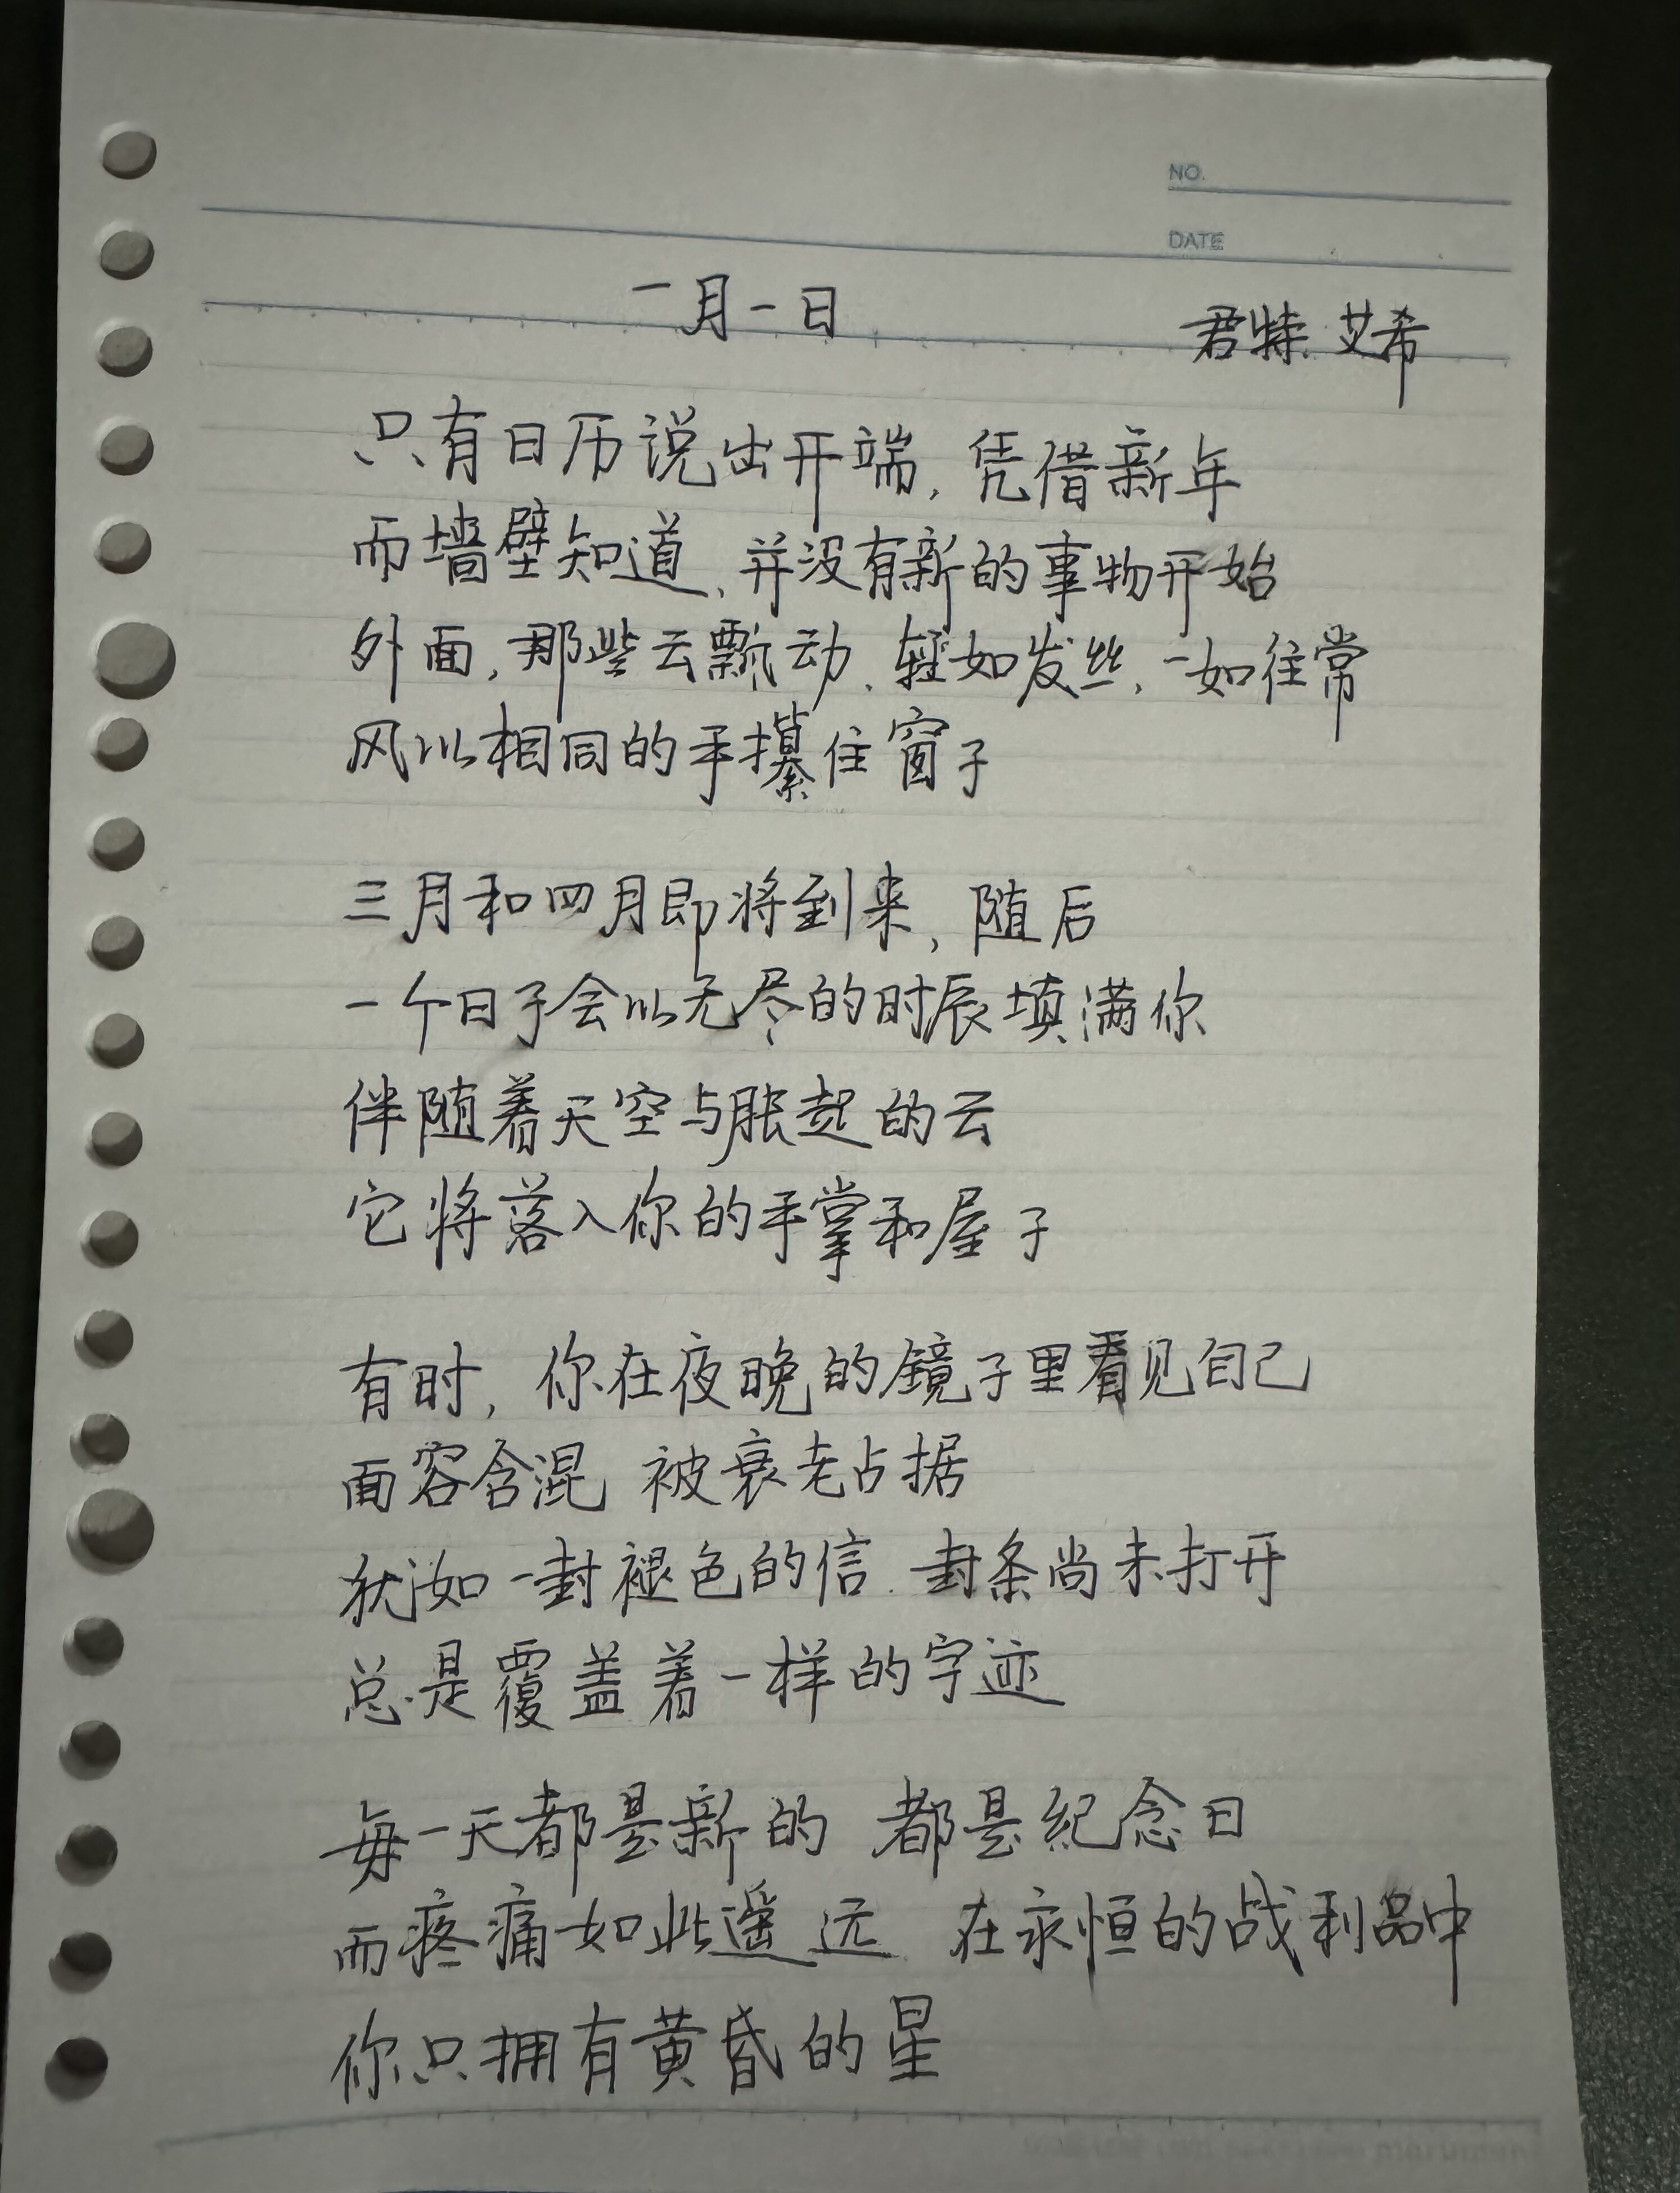 NO.
DATE
一月一日
君特.艾希
只有日历说出开端,凭借新年
而墙壁知道,并没有新的事物开始
外面,那些云飘动,轻如发丝,一如往常
风以相同的手攥住窗子
三月和四月即将到来,随后
一个日子会以无尽的时辰填满你
伴随着天空与胀起的云
它将落入你的手掌和屋子
有时,你在夜晚的镜子里看见自己
面容含混 被衰老占据
犹如一封褪色的信.封条尚未打开
总是覆盖着一样的字迹
每一天都是新的 都是纪念日
而疼痛如此遥远 在永恒的战利品中
你只拥有黄昏的星